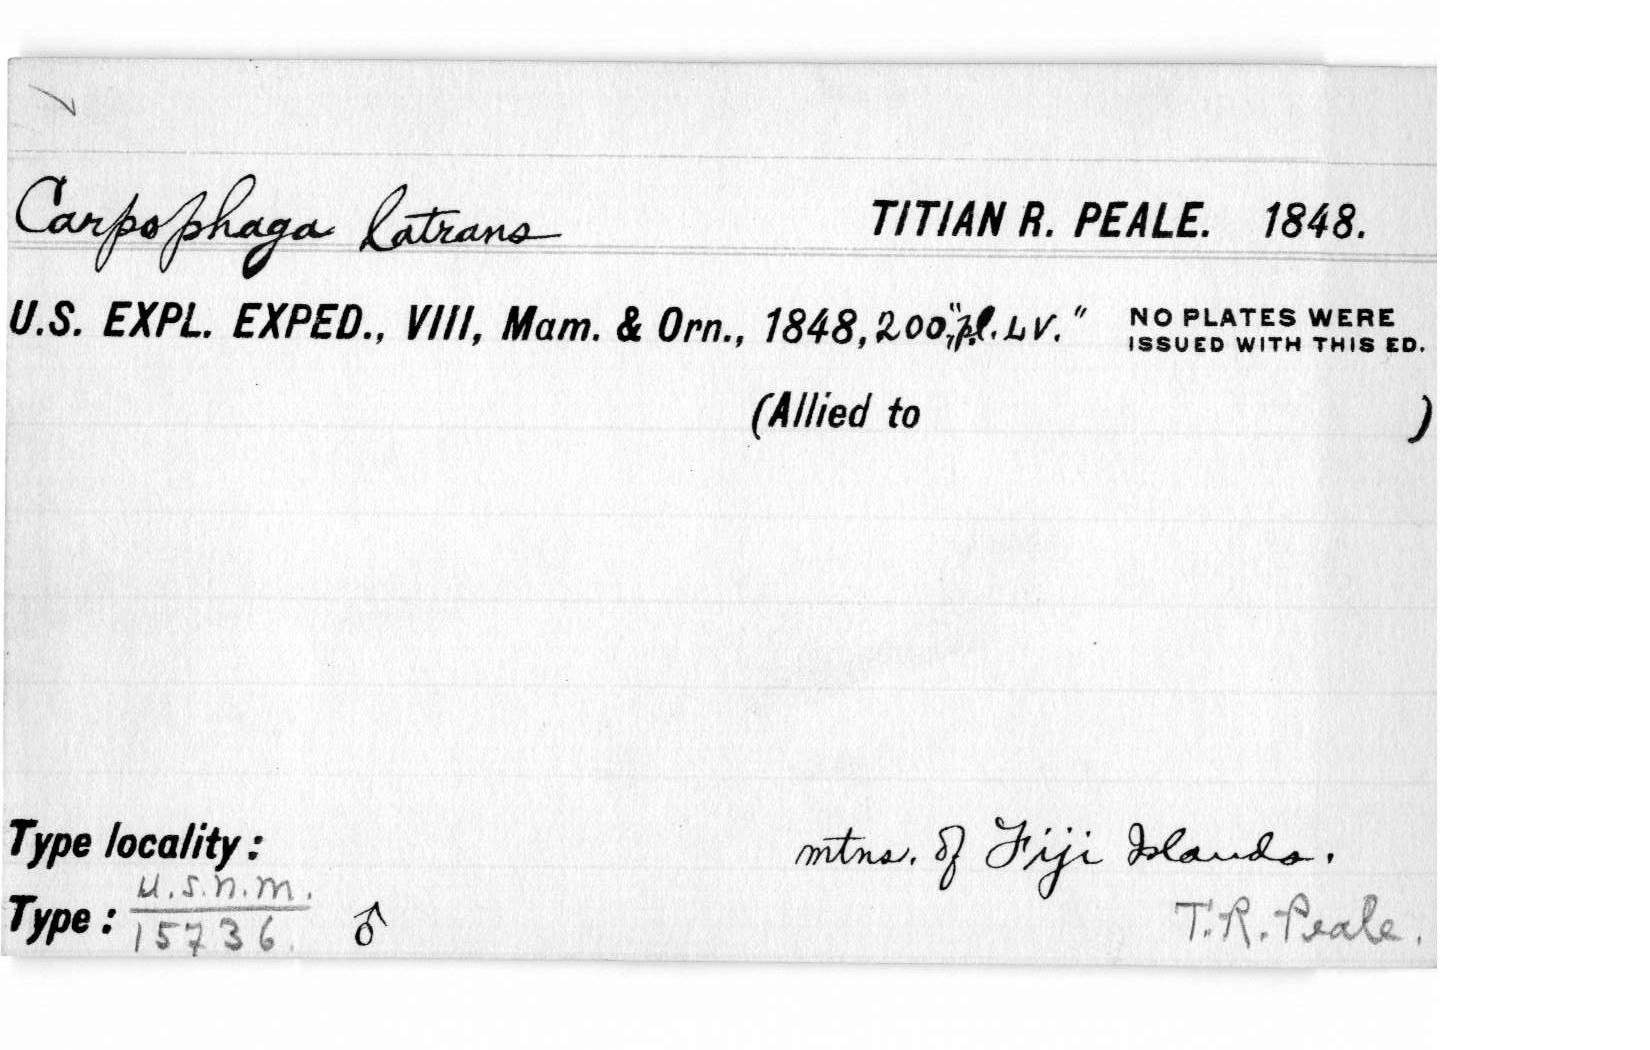 Carpophaga latrans TITIAN R. PEALE. 1848.
U.S. EXPL. EXPED., VIII, Mam. & Orn., 1848, 200, "pl. LV." NO PLATES WERE
ISSUED WITH THIS ED.
(Allied to )
Type locality: mtns. of Fiji Islands.
U.S.N.M.
Type: 15736. ♂ T.R. Peale.